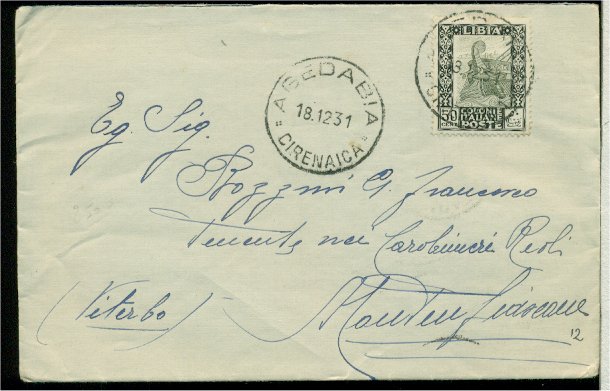 LIBIA
50 COLONIE
CENT ITALIANE
POSTE
AGEDABIA
18.12.31
CIRENAICA
Eg. Sig.
G. Francesco
Tenente nei Carabinieri Reali
(Viterbo)
Montefiascone
12